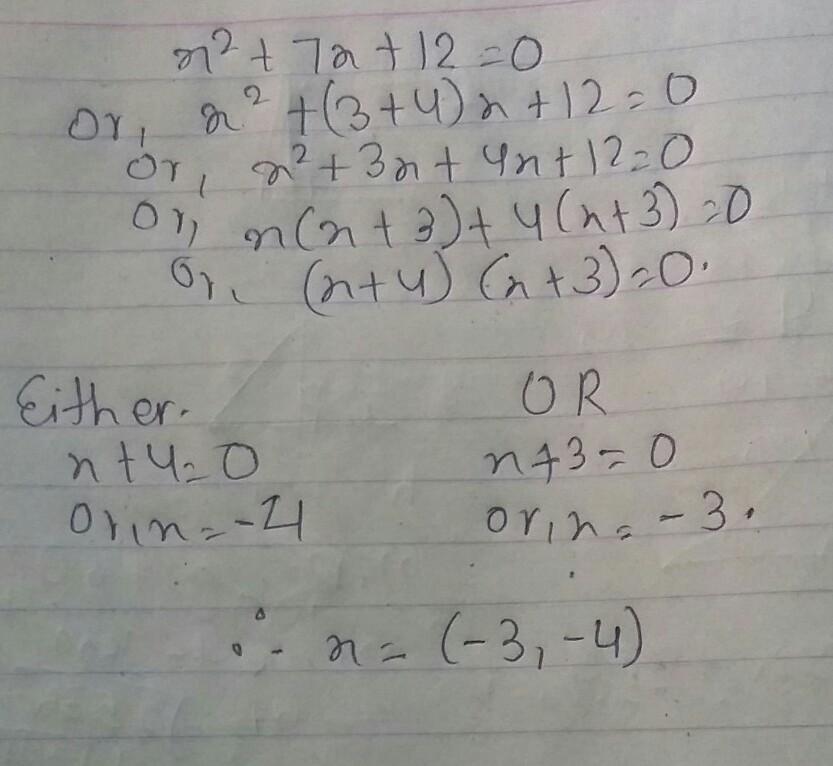 x² + 7x + 12 = 0
or, x² + (3+4)x + 12 = 0
or, x² + 3x + 4x + 12 = 0
or, x(x + 3) + 4(x+3) = 0
or, (x+4) (x+3) = 0.
Either. OR
x + 4 = 0 x + 3 = 0
or, x = -4 or, x = -3.
∴ x = (-3, -4)